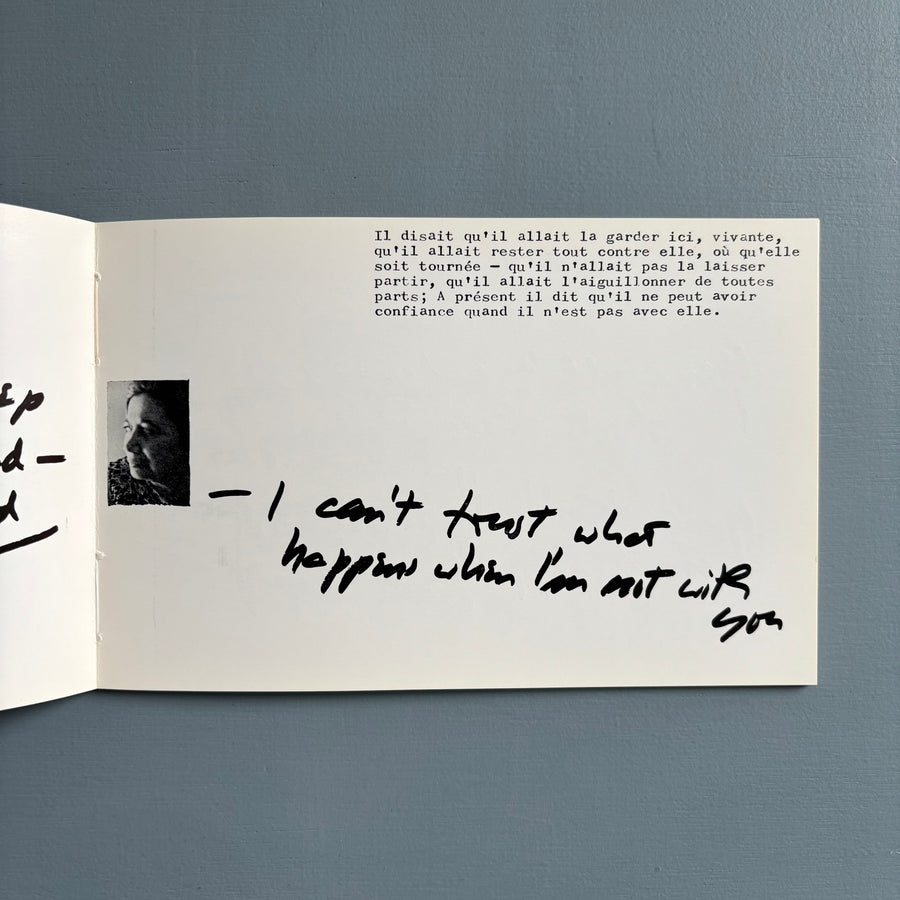 d —
d
Il disait qu'il allait la garder ici, vivante,
qu'il allait rester tout contre elle, où qu'elle
soit tournée — qu'il n'allait pas la laisser
partir, qu'il allait l'aiguillonner de toutes
parts; A présent il dit qu'il ne peut avoir
confiance quand il n'est pas avec elle.
— I can't trust what
happens when I'm not with
you